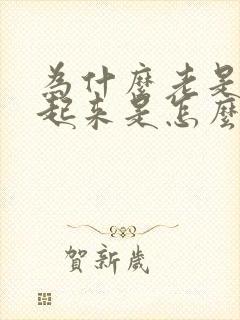 為什麼老是
起來是怎麼
賀新歲